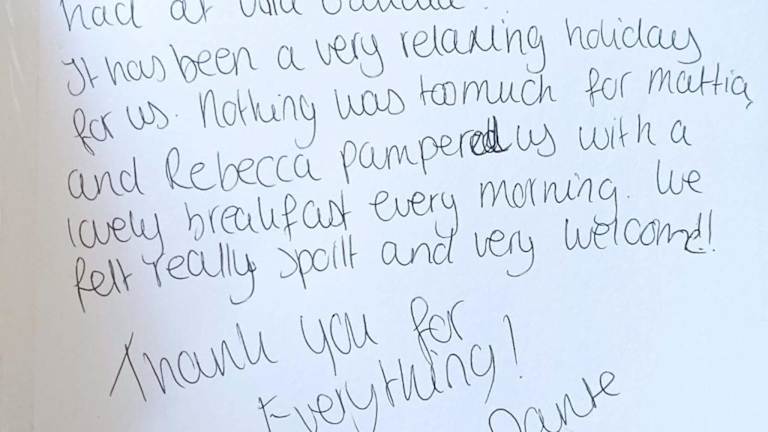 had at Villa
It has been a very relaxing holiday
for us. Nothing was too much for mattia,
and Rebecca pampered us with a
lovely breakfast every morning. We
felt really spoilt and very welcome!
Thank you for
Everything!
Dante